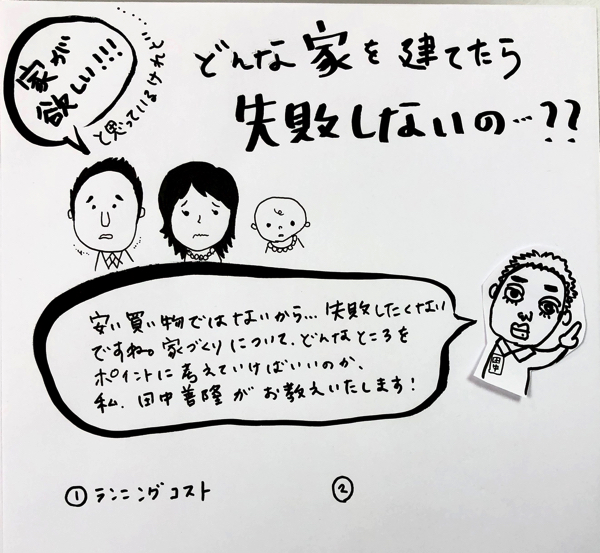 家が
欲しい!!!
と思っているけれど…
どんな家を建てたら
失敗しないの…??
安い買い物ではないから…失敗したくない
ですね。家づくりについて、どんなところを
ポイントに考えていけばいいのか、
私、田中善隆がお教えいたします!
田中
①ランニングコスト
②